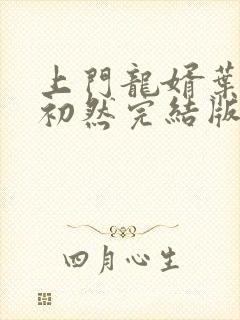 上門龍婿葉
初然完結版
四月心生